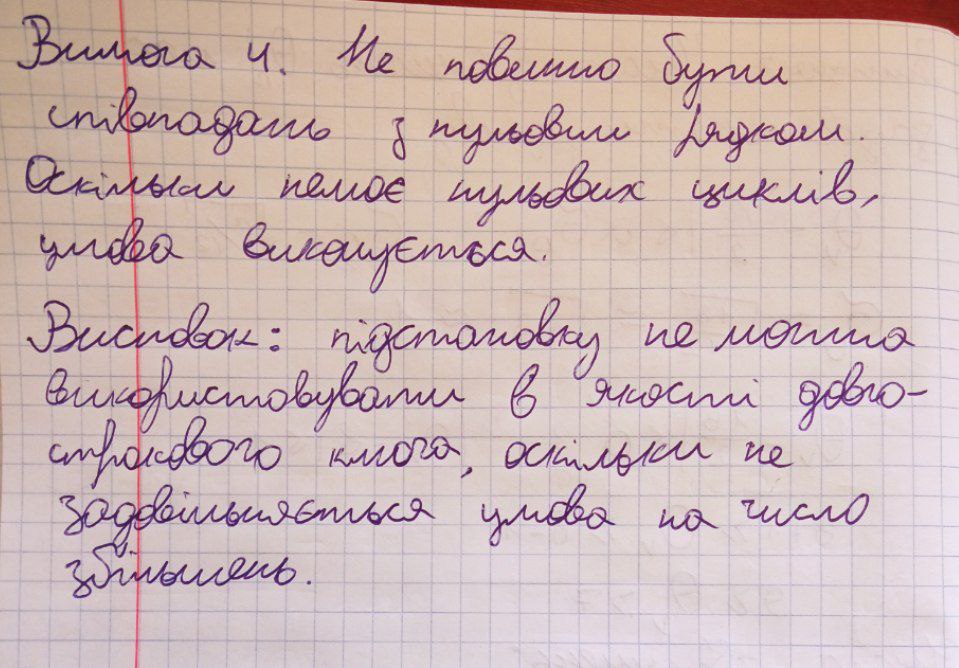 Вимога 4. Не повинно бути
співпадань з нульовим рядком.
Оскільки немає нульових циклів,
умова виконується.
Висновок: підстановку не можна
використовувати в якості довго-
строкового ключа, оскільки не
задовільняється умова на число
збільшень.